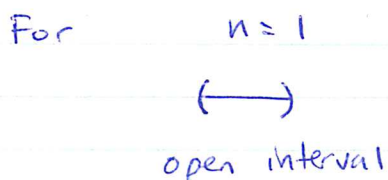 For n = 1
open interval